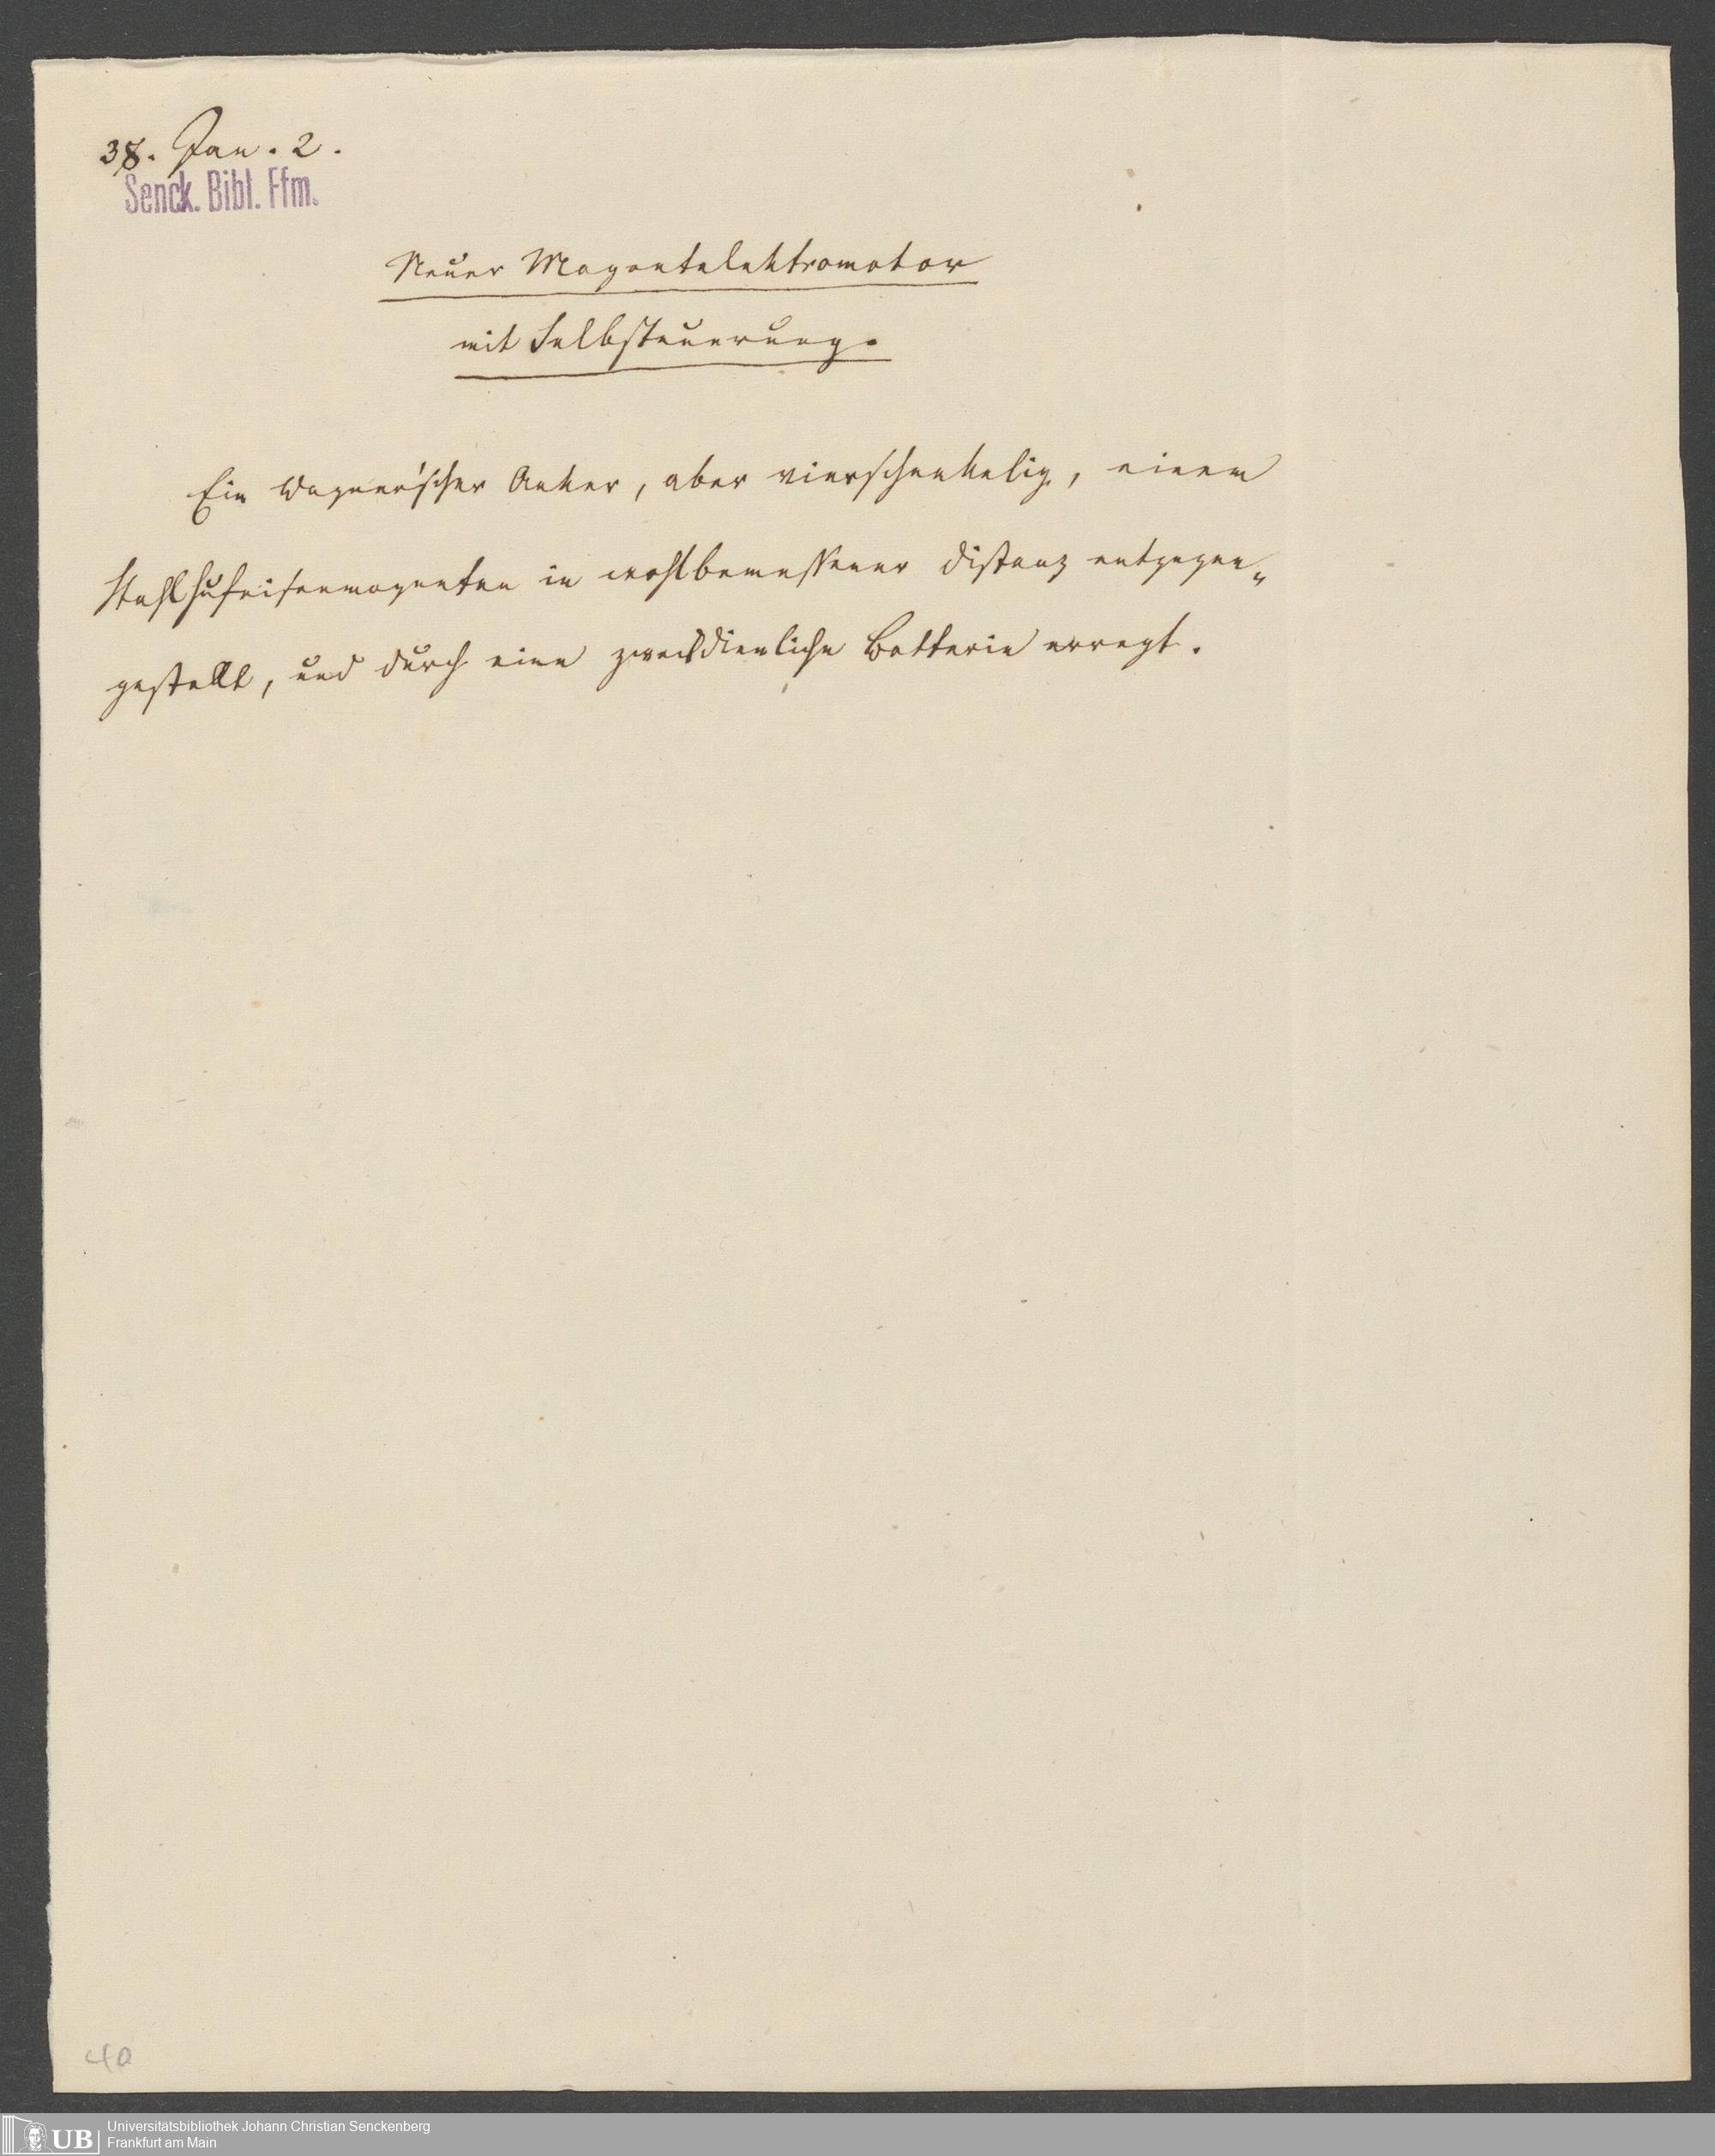 38. Jan. 2.
Senck. Bibl. Ffm.
Neuer Magentelektromotor
mit Selbsteuerung.
Ein Wagner'scher Anker, aber vierschenkelig, einem
Stahlhufeisenmagneten in wohlbemessener Distanz entgegen„
gestellt, und durch eine zweckdienliche Batterie erregt.
40
UB
Universitätsbibliothek Johann Christian Senckenberg
Frankfurt am Main